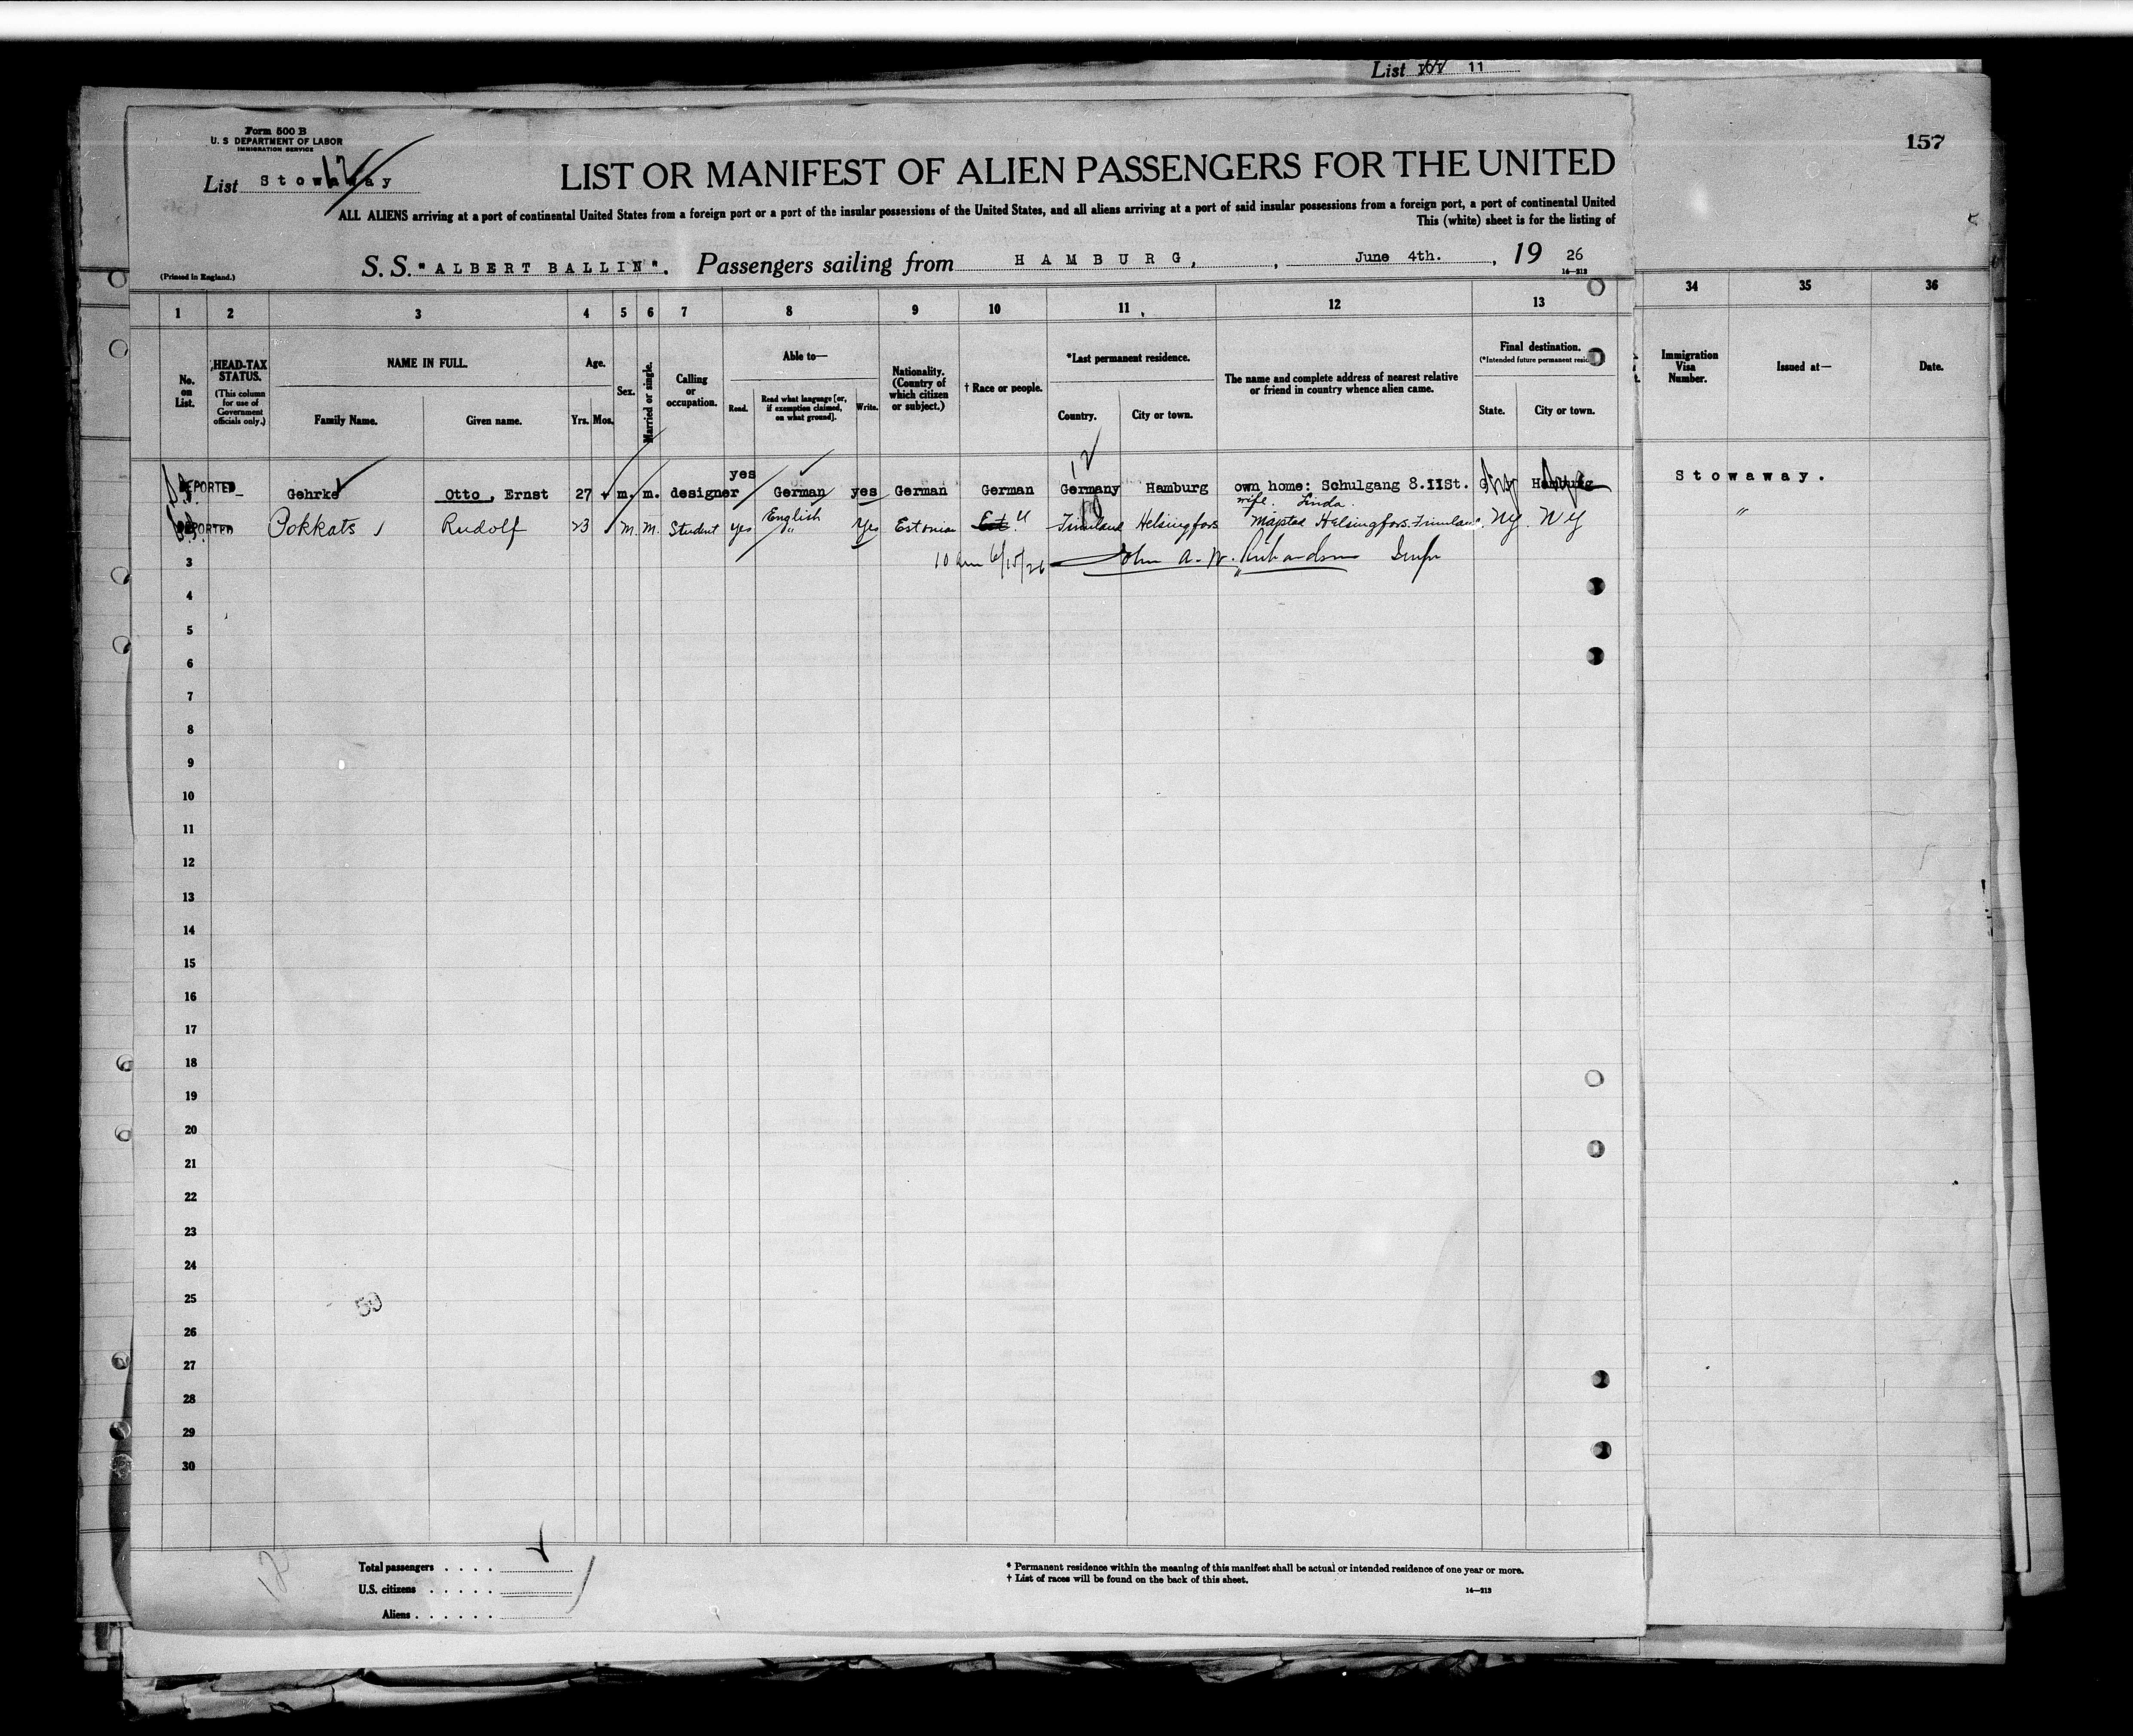 List 11
157
Form 500 B
U. S DEPARTMENT OF LABOR
IMMIGRATION SERVICE
List Stowaway 12
LIST OR MANIFEST OF ALIEN PASSENGERS FOR THE UNITED
ALL ALIENS arriving at a port of continental United States from a foreign port or a port of the insular possessions of the United States, and all aliens arriving at a port of said insular possessions from a foreign port, a port of continental United
This (white) sheet is for the listing of
(Printed in England.)
S. S. "ALBERT BALLIN". Passengers sailing from HAMBURG, , June 4th. , 19 26
14—213
1 2 3 4 5 6 7 8 9 10 11 12 13 34 35 36
No. on List.
HEAD-TAX STATUS.
(This column for use of Government officials only.)
NAME IN FULL.
Family Name.
Given name.
Age.
Yrs. Mos.
Sex.
Married or single.
Calling or occupation.
Able to—
Read.
Read what language [or, if exemption claimed, on what ground].
Write.
Nationality. (Country of which citizen or subject.)
† Race or people.
*Last permanent residence.
Country.
City or town.
The name and complete address of nearest relative or friend in country whence alien came.
Final destination.
(*Intended future permanent resi
State.
City or town.
Immigration Visa Number.
Issued at—
Date.
12
DEPORTED Gehrke Otto, Ernst 27 m. m. designer yes German yes German German Germany Hamburg own home: Schulgang 8.IISt. Hamburg Stowaway.
wife. Linda.
DEPORTED Pokkats Rudolf 23 M. M. Student yes English " Yes Estonian Est " Finnland Helsingfors Mäjstad Helsingfors. Finnland. NY. NY "
3 10 am 6/15/26 John A. W. Richardson Inspr
4
5
6
7
8
9
10
11
12
13
14
15
16
17
18
19
20
21
22
23
24
25
50
26
27
28
29
30
12
Total passengers . . . .
U.S. citizens . . . . .
Aliens . . . . . .
* Permanent residence within the meaning of this manifest shall be actual or intended residence of one year or more.
† List of races will be found on the back of this sheet.
14—213